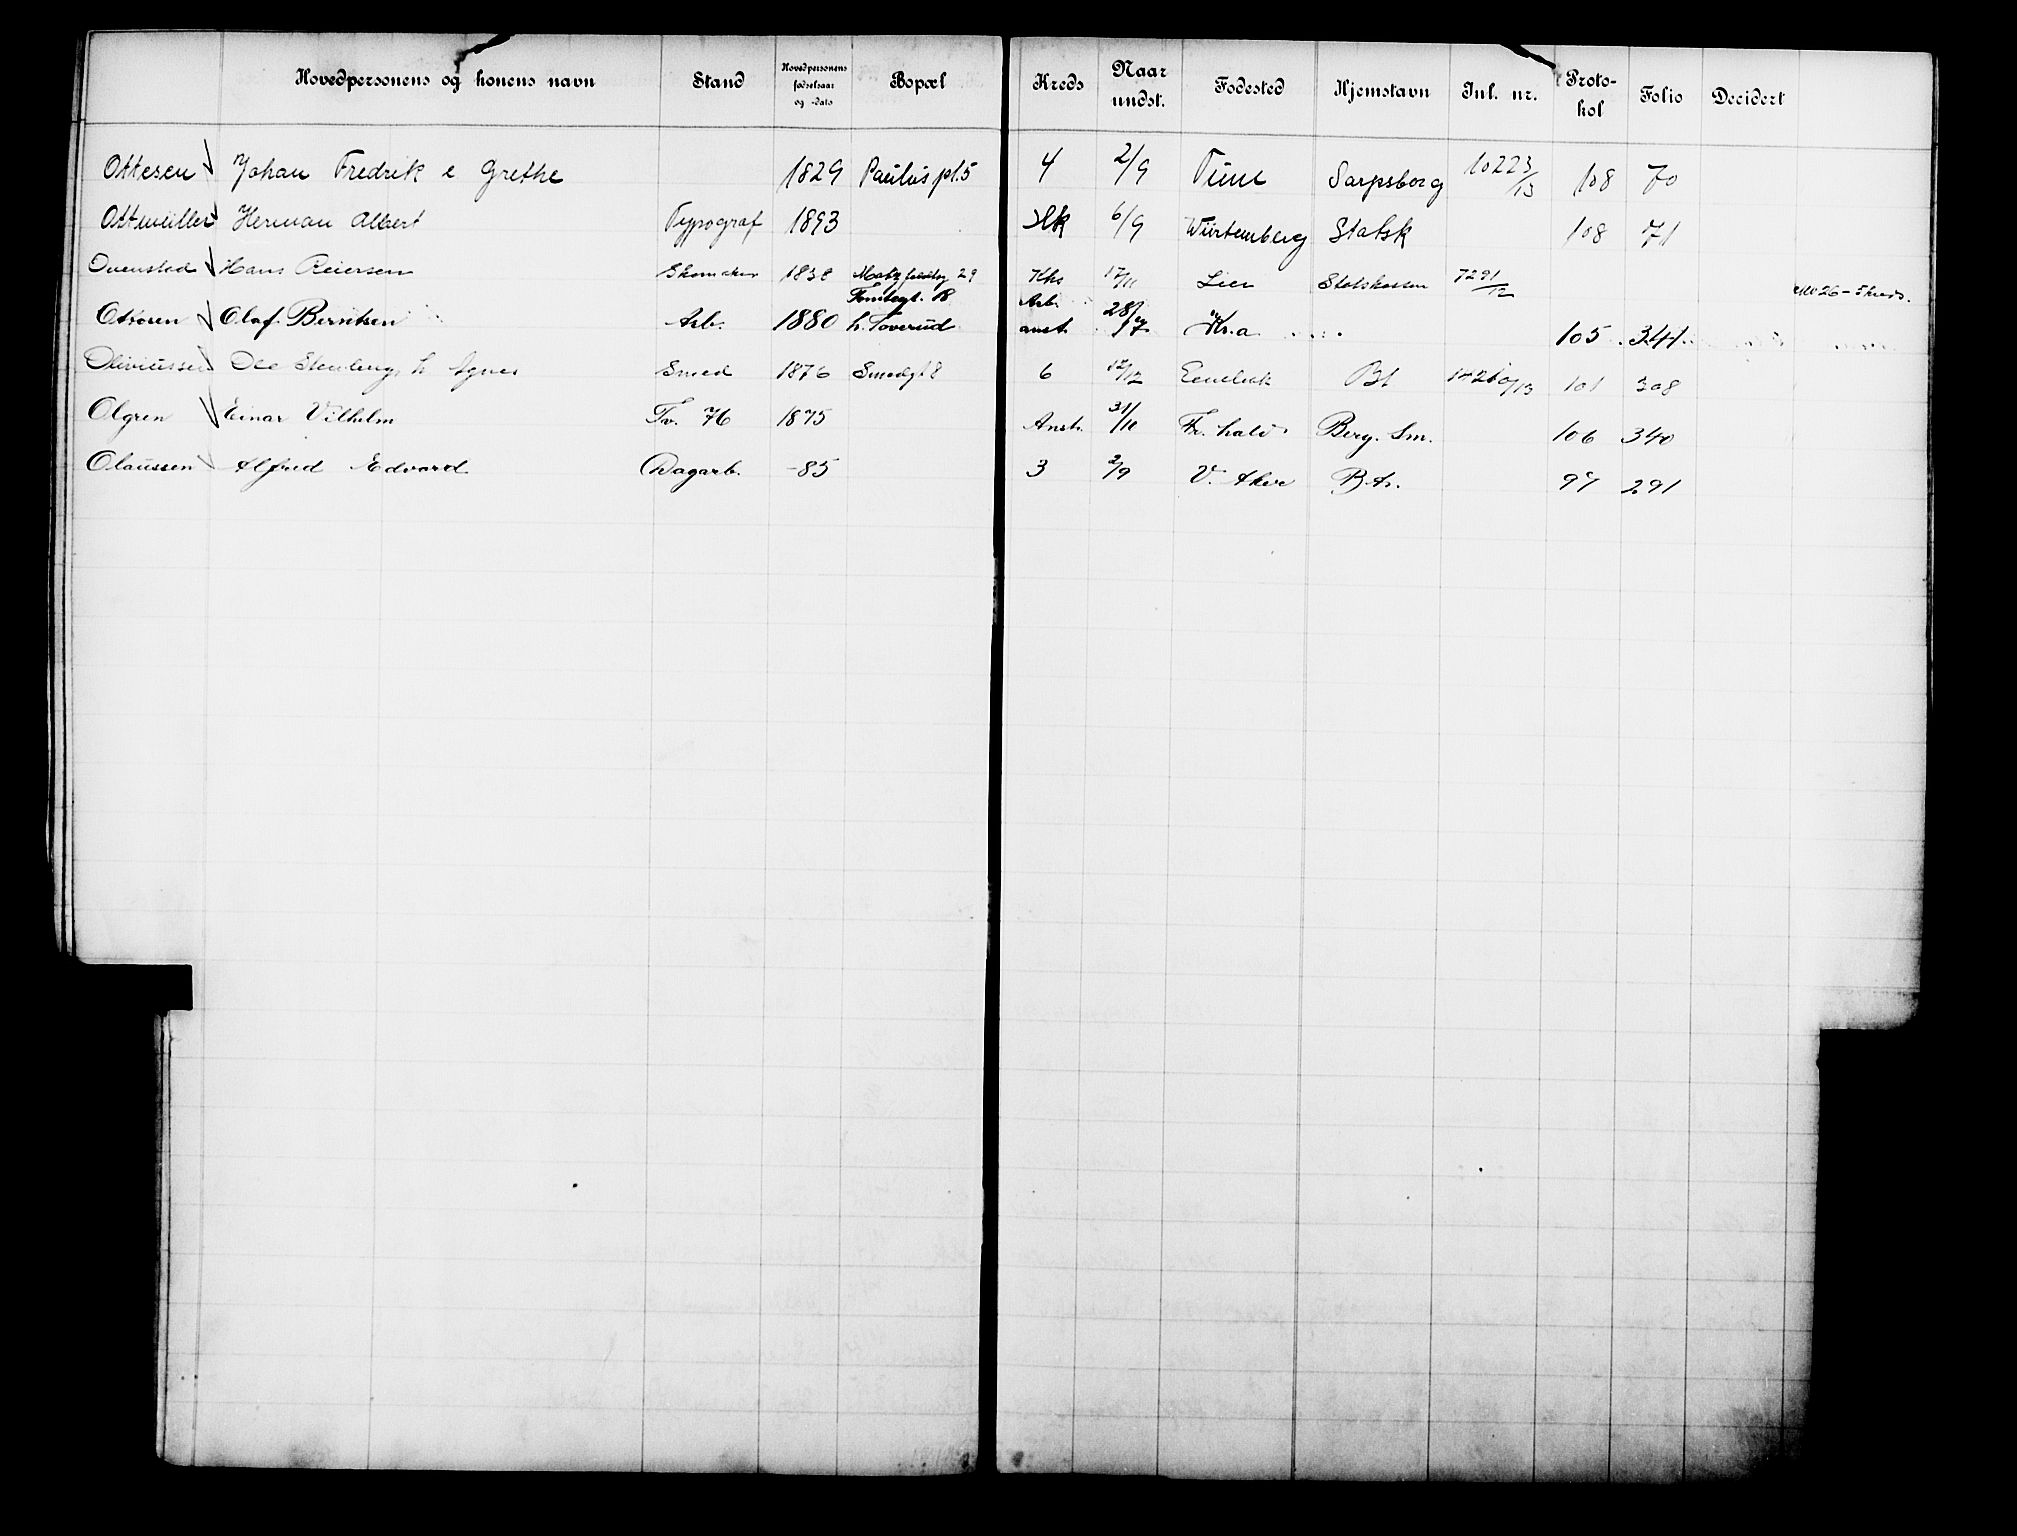 Hovedpersonens og konens navn Stand Hovedpersonens fødselsaar og -dato Bopæl Kreds Naar undst. Fødested Hjemstavn Inl. nr. Proto-kol Folio Decidert
Ottesen Johan Fredrik e Grethe 1829 Paulus pl. 5 4 2/9 Tune Sarpsborg 10223/13 108 70
Ottmüller Herman Albert Typograf 1893 6/9 Würtemberg Statsk 108 71
Ovenstad Hans Reiersen Skomaker 1838 29 Khs 17/11 Lier Statskassen 7291/12
Olsen Olaf Berntsen Arb. 1880 Tomtegt. 18 h. Soverud Arb. anst. 28/7 17 Kr.a 105 341
Oliviussen Ole Stenberg, h Agnes Smed 1876 Smedgt 8 6 12/12 Enebak Bt 14210/13 101 308
Olgren Einar Vilhelm Tv. 76 1875 Anst. 31/10 Fr. hald Berg. Sm. 106 340
Olaussen Alfred Edvard Dagarb. -85 3 2/9 V. Aker B.A. 97 291